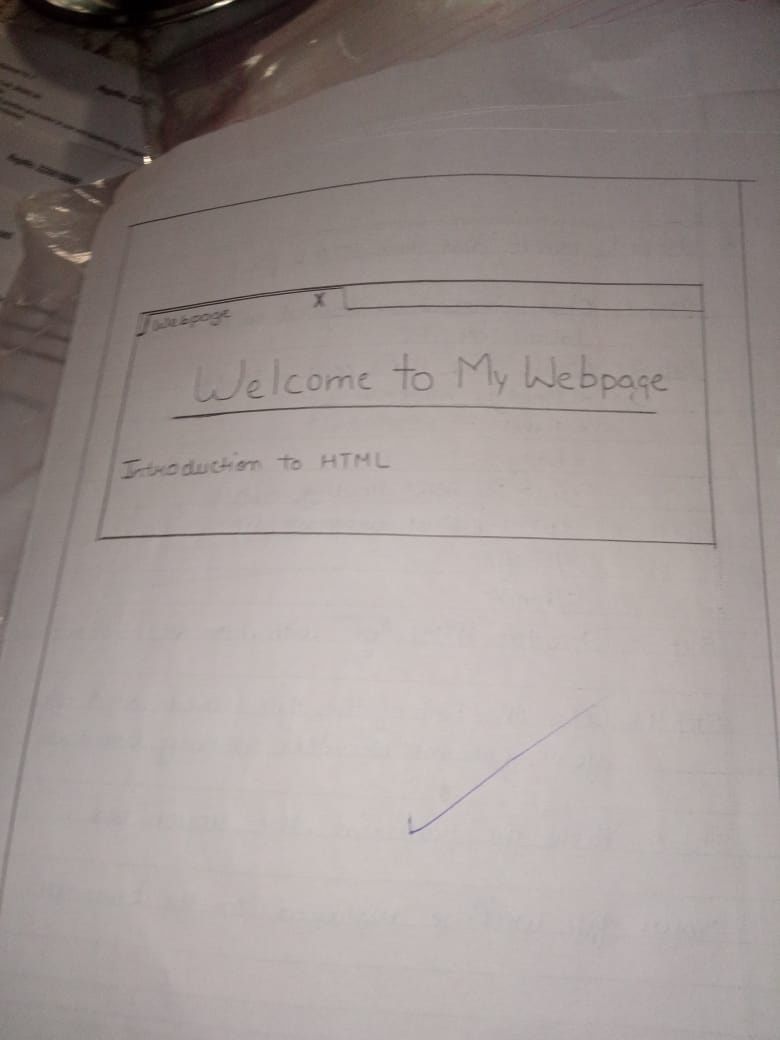 Webpage X
Welcome to My Webpage
Introduction to HTML